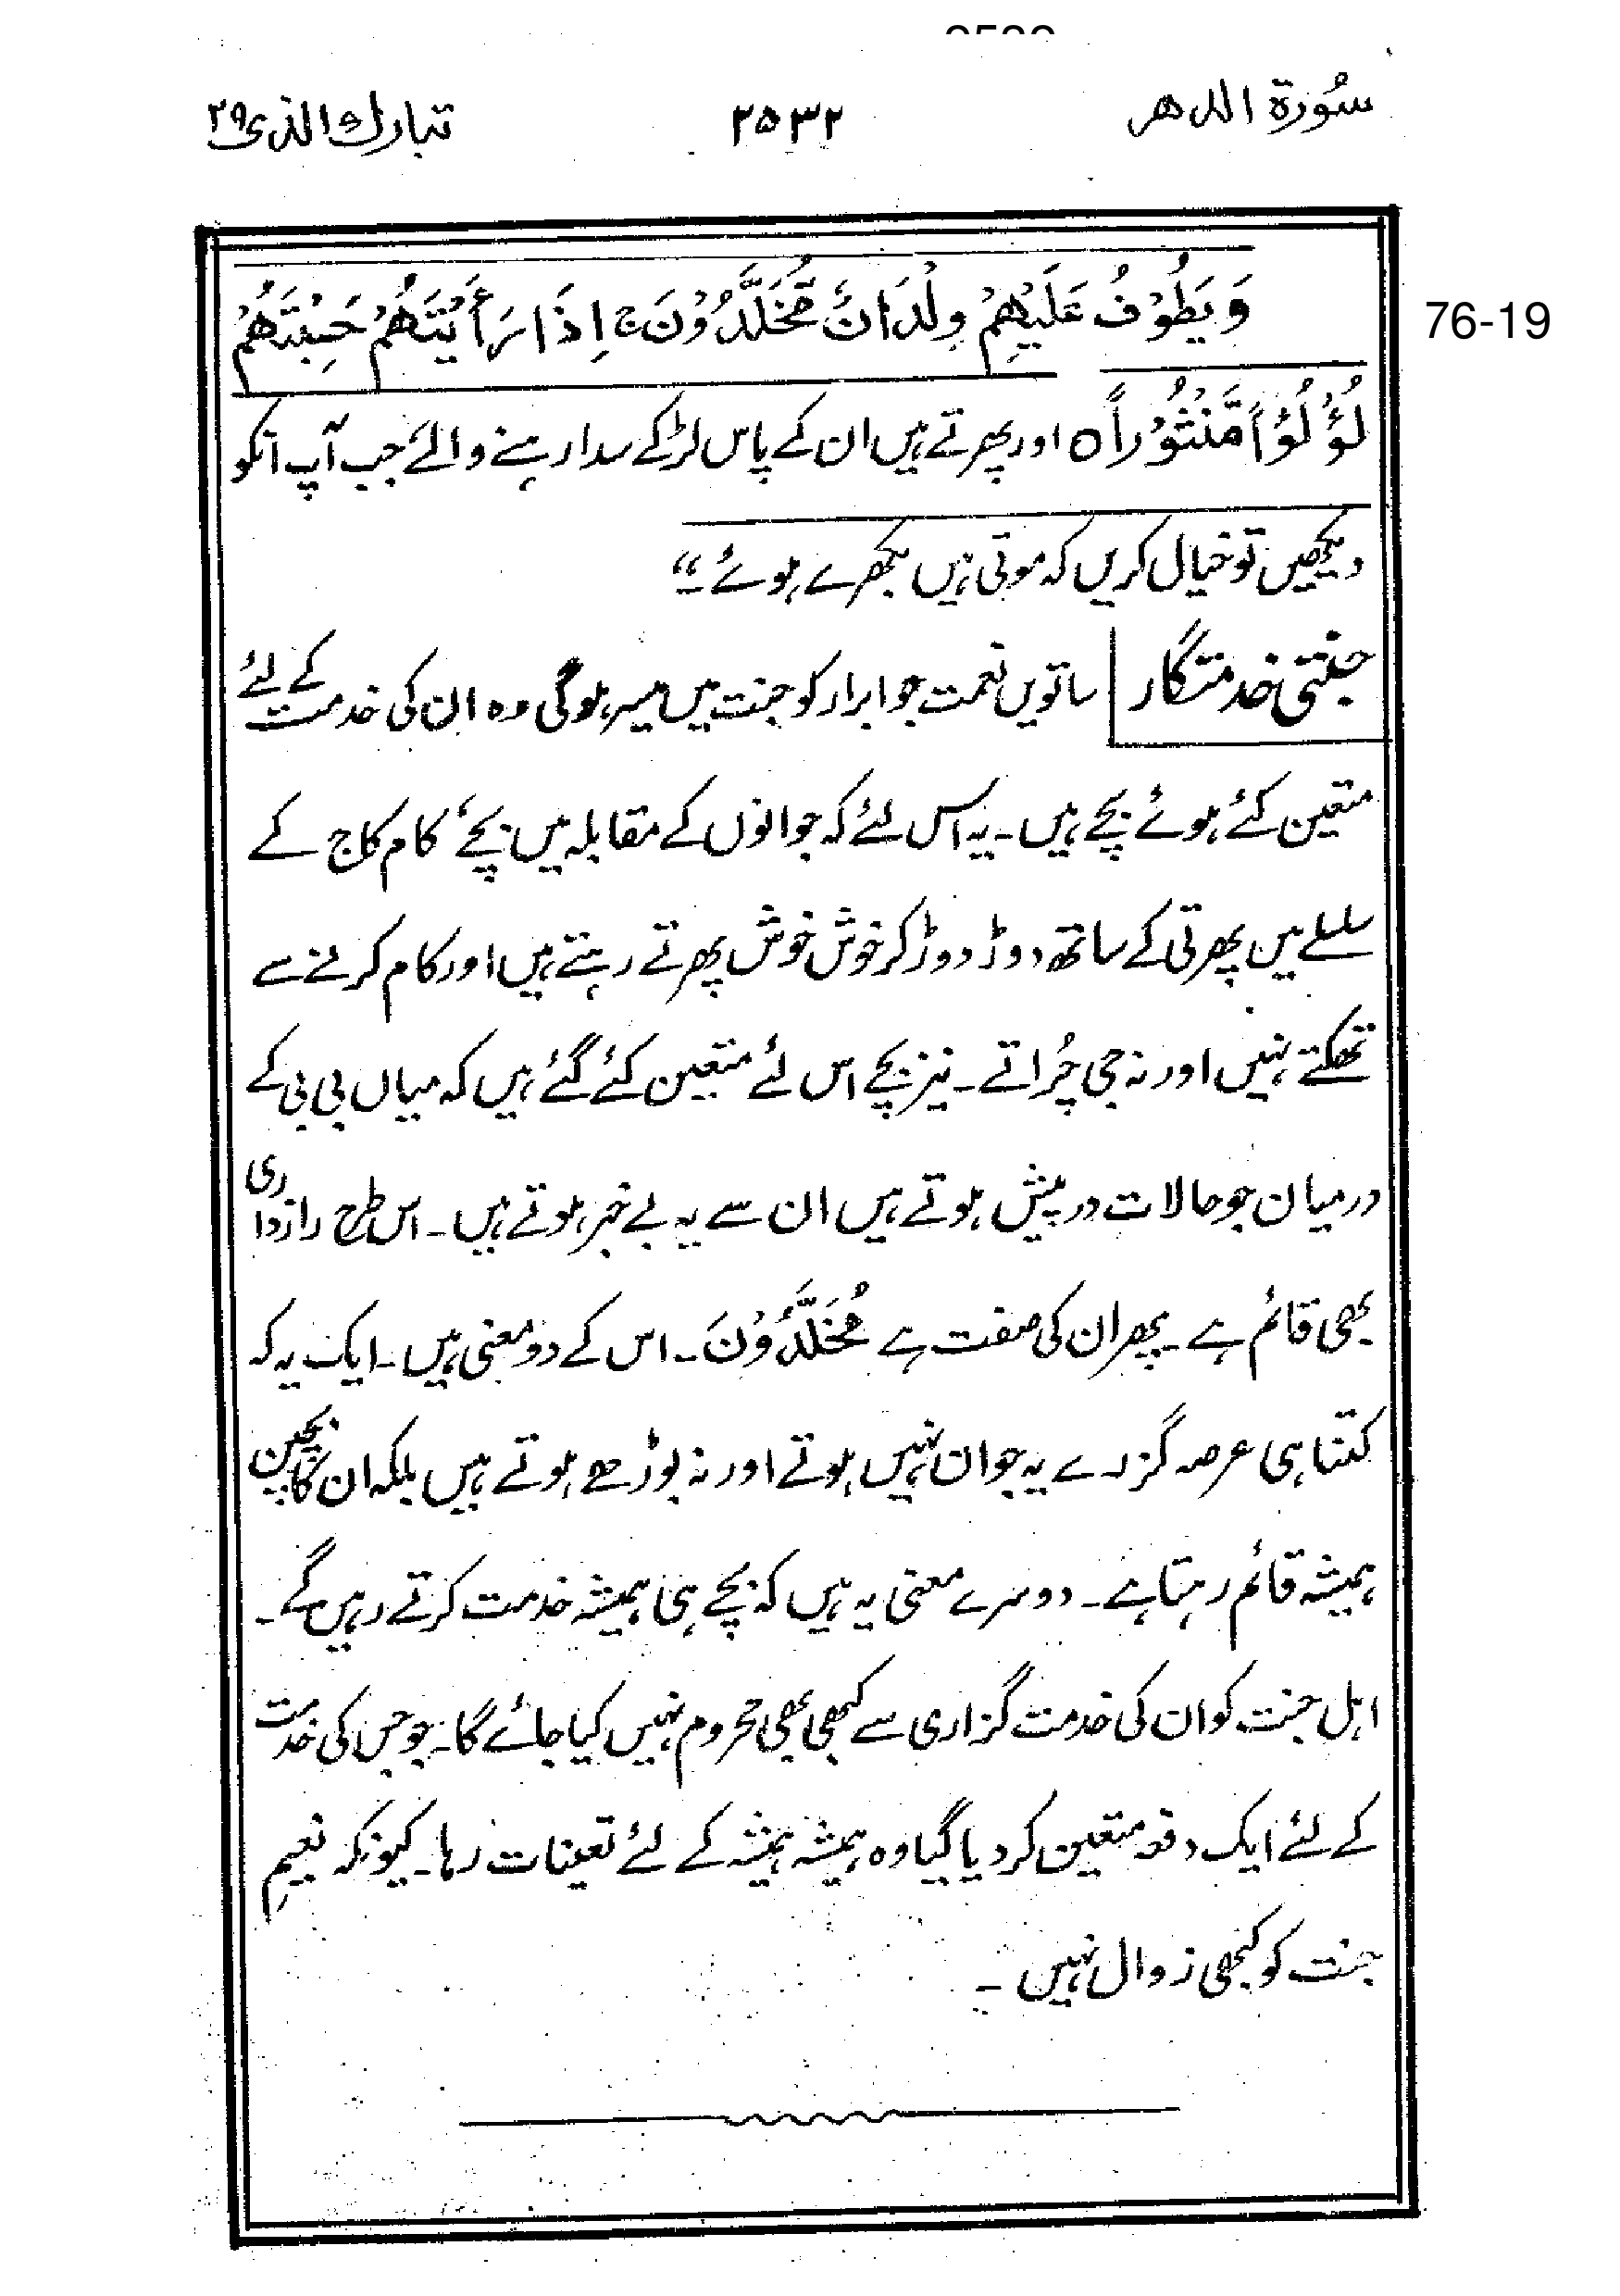 سُورة الدهر ۲۵۳۲ تبارك الذى ۲۹
وَيَطُوْفُ عَلَيْهِمْ وِلْدَانٌ مُّخَلَّدُوْنَ ج اِذَا رَأَيْتَهُمْ حَسِبْتَهُمْ
76-19
لُؤْلُؤًا مَّنْثُوْراً ہ اور پھرتے ہیں ان کے پاس لڑکے سدا رہنے والے جب آپ انکو
دیکھیں تو خیال کریں کہ موتی ہیں بکھرے ہوئے“
جنتی خدمتگار ساتویں نعمت جو ابرار کو جنت میں میسر ہوگی وہ ان کی خدمت کے لئے
متعین کئے ہوئے بچے ہیں ۔ یہ اس لئے کہ جوانوں کے مقابلہ میں بچے کام کاج کے
سلسلے میں پھرتی کے ساتھ دوڑ دوڑ کر خوش خوش پھرتے رہتے ہیں اور کام کرنے سے
تھکتے نہیں اور نہ جی چُراتے ۔ نیز بچے اس لئے متعین کئے گئے ہیں کہ میاں بی بی کے
درمیان جو حالات درپیش ہوتے ہیں ان سے یہ بے خبر ہوتے ہیں ۔ اس طرح رازداری
بھی قائم ہے ۔ پھر ان کی صفت ہے مُخَلَّدُوْنَ ۔ اس کے دو معنی ہیں ۔ ایک یہ کہ
کتنا ہی عرصہ گزرے یہ جوان نہیں ہوتے اور نہ بوڑھے ہوتے ہیں بلکہ ان کا بچپن
ہمیشہ قائم رہتا ہے ۔ دوسرے معنی یہ ہیں کہ بچے ہی ہمیشہ خدمت کرتے رہیں گے ۔
اہل جنت کو ان کی خدمت گزاری سے کبھی بھی محروم نہیں کیا جائے گا ۔ جو جس کی خدمت
کے لئے ایک دفعہ متعین کر دیا گیا وہ ہمیشہ ہمیشہ کے لئے تعینات رہا ۔ کیونکہ نعیمِ
جنت کو کبھی زوال نہیں ۔